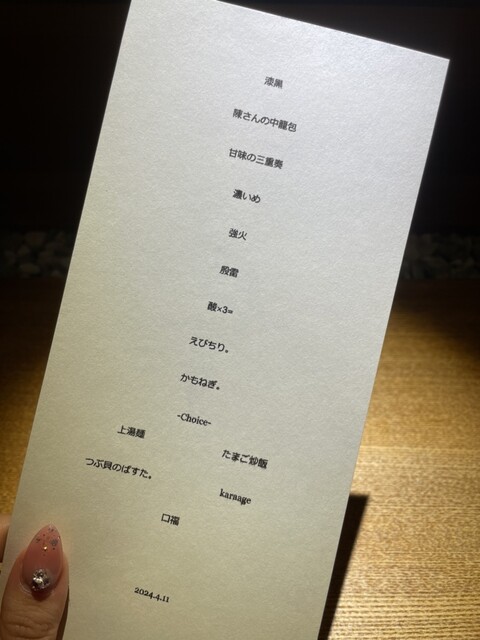 漆黒
陳さんの中籠包
甘味の三重奏
濃いめ
強火
殷雷
酸×3=
えびちり。
かもねぎ。
-Choice-
上湯麺
たまご炒飯
つぶ貝のぱすた。
karaage
口福
2024.4.11